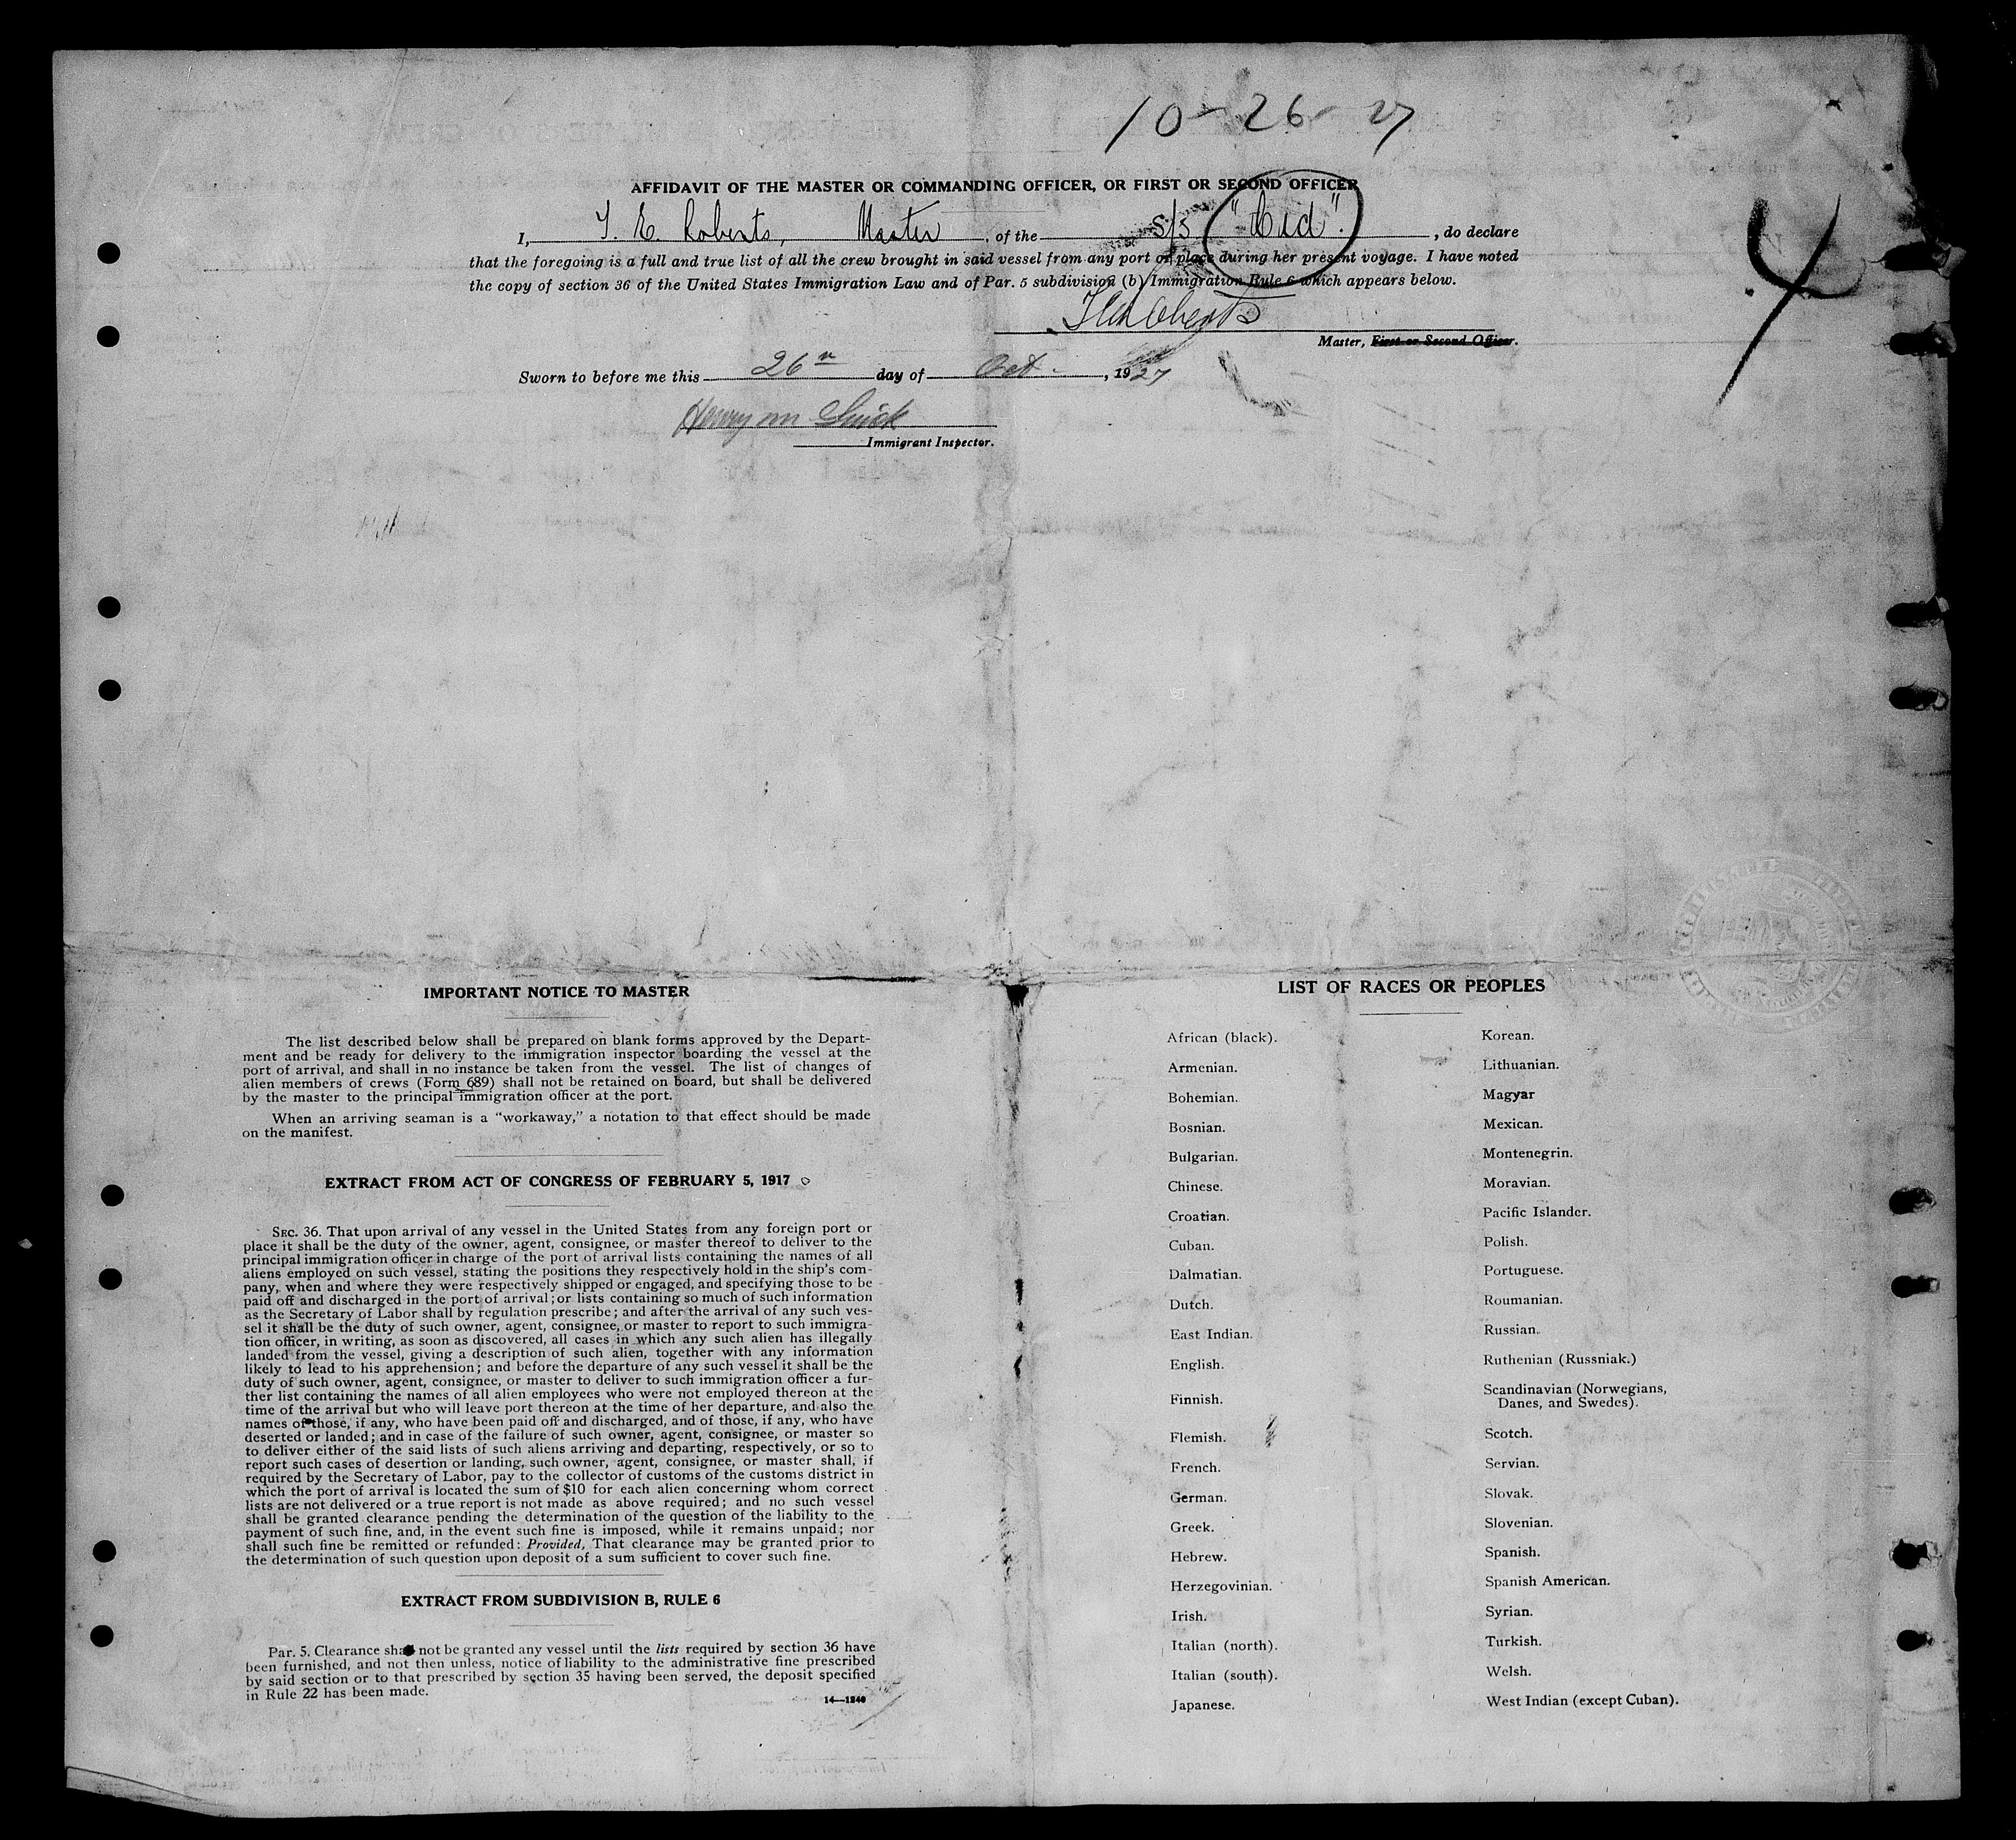 10-26-27
4
AFFIDAVIT OF THE MASTER OR COMMANDING OFFICER, OR FIRST OR SECOND OFFICER
I, T. E. Roberts, Master, of the S/S "Cid". , do declare
that the foregoing is a full and true list of all the crew brought in said vessel from any port or place during her present voyage. I have noted
the copy of section 36 of the United States Immigration Law and of Par. 5 subdivision (b) Immigration Rule 6 which appears below.
T E Roberts
Master, First or Second Officer.
Sworn to before me this 26th day of Oct. , 1927
Henry m
Immigrant Inspector.
IMPORTANT NOTICE TO MASTER
The list described below shall be prepared on blank forms approved by the Depart-
ment and be ready for delivery to the immigration inspector boarding the vessel at the
port of arrival, and shall in no instance be taken from the vessel. The list of changes of
alien members of crews (Form 689) shall not be retained on board, but shall be delivered
by the master to the principal immigration officer at the port.
When an arriving seaman is a “workaway,” a notation to that effect should be made
on the manifest.
EXTRACT FROM ACT OF CONGRESS OF FEBRUARY 5, 1917
SEC. 36. That upon arrival of any vessel in the United States from any foreign port or
place it shall be the duty of the owner, agent, consignee, or master thereof to deliver to the
principal immigration officer in charge of the port of arrival lists containing the names of all
aliens employed on such vessel, stating the positions they respectively hold in the ship's com-
pany, when and where they were respectively shipped or engaged, and specifying those to be
paid off and discharged in the port of arrival; or lists containing so much of such information
as the Secretary of Labor shall by regulation prescribe; and after the arrival of any such ves-
sel it shall be the duty of such owner, agent, consignee, or master to report to such immigra-
tion officer, in writing, as soon as discovered, all cases in which any such alien has illegally
landed from the vessel, giving a description of such alien, together with any information
likely to lead to his apprehension; and before the departure of any such vessel it shall be the
duty of such owner, agent, consignee, or master to deliver to such immigration officer a fur-
ther list containing the names of all alien employees who were not employed thereon at the
time of the arrival but who will leave port thereon at the time of her departure, and also the
names of those, if any, who have been paid off and discharged, and of those, if any, who have
deserted or landed; and in case of the failure of such owner, agent, consignee, or master so
to deliver either of the said lists of such aliens arriving and departing, respectively, or so to
report such cases of desertion or landing, such owner, agent, consignee, or master shall, if
required by the Secretary of Labor, pay to the collector of customs of the customs district in
which the port of arrival is located the sum of $10 for each alien concerning whom correct
lists are not delivered or a true report is not made as above required; and no such vessel
shall be granted clearance pending the determination of the question of the liability to the
payment of such fine, and, in the event such fine is imposed, while it remains unpaid; nor
shall such fine be remitted or refunded: Provided, That clearance may be granted prior to
the determination of such question upon deposit of a sum sufficient to cover such fine.
EXTRACT FROM SUBDIVISION B, RULE 6
Par. 5. Clearance shall not be granted any vessel until the lists required by section 36 have
been furnished, and not then unless, notice of liability to the administrative fine prescribed
by said section or to that prescribed by section 35 having been served, the deposit specified
in Rule 22 has been made.
14—1240
LIST OF RACES OR PEOPLES
African (black).
Armenian.
Bohemian.
Bosnian.
Bulgarian.
Chinese.
Croatian.
Cuban.
Dalmatian.
Dutch.
East Indian.
English.
Finnish.
Flemish.
French.
German.
Greek.
Hebrew.
Herzegovinian.
Irish.
Italian (north).
Italian (south).
Japanese.
Korean.
Lithuanian.
Magyar
Mexican.
Montenegrin.
Moravian.
Pacific Islander.
Polish.
Portuguese.
Roumanian.
Russian.
Ruthenian (Russniak.)
Scandinavian (Norwegians,
Danes, and Swedes).
Scotch.
Servian.
Slovak.
Slovenian.
Spanish.
Spanish American.
Syrian.
Turkish.
Welsh.
West Indian (except Cuban).